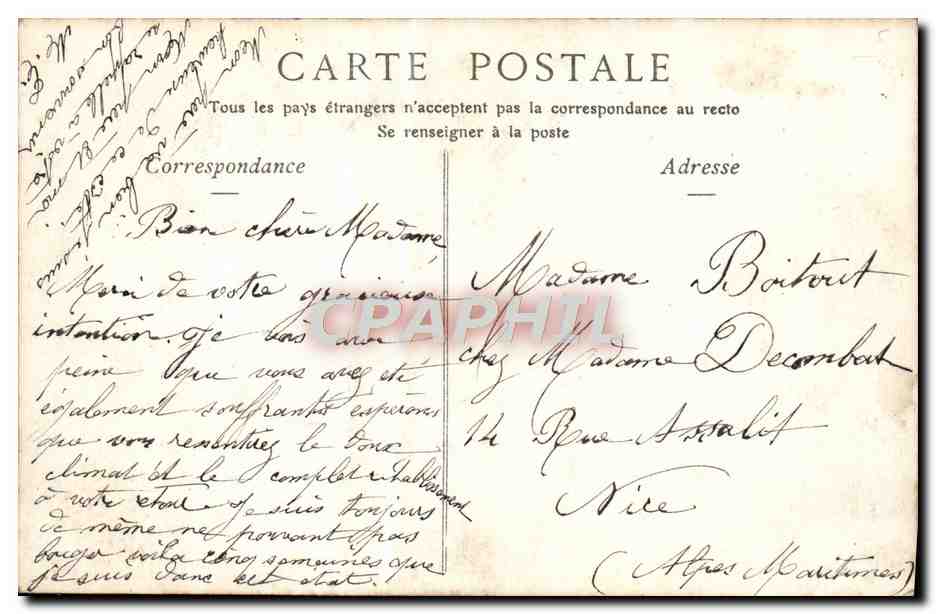 CARTE POSTALE
Tous les pays étrangers n'acceptent pas la correspondance au recto
Se renseigner à la poste
Correspondance
Adresse
Bien chère Madame,
Merci de votre gracieuse
intention. Je vois avec
peine que vous avez été
également souffrante espérons
que vous ressentirez le doux
climat et le complet rétablissement
à votre retour. Je suis toujours
de même ne pouvant pas
bouger voila cinq semaines que
je suis dans cet état.
Mon père va bien je suis
heureuse de ce côté.
Mon père et moi
rappelle à votre
bon souvenir
Madame Boitout
chez Madame Decombat
14 Rue Assalit
Nice
(Alpes Maritimes)
CPAPHIL